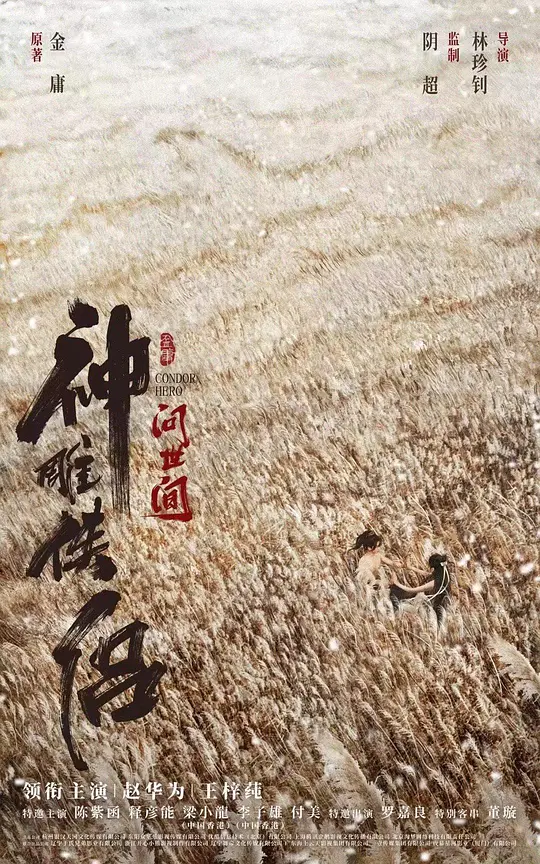 原著
金庸
导演
林珍钊
监制
阴超
神雕侠侣
金庸
CONDOR
HERO
问世间
领衔主演 | 赵华为 | 王梓莼
特邀主演 陈紫函 释彦能 梁小龍 李子雄 付美 特邀出演 罗嘉良 特别客串 董璇
(中国香港) (中国香港)